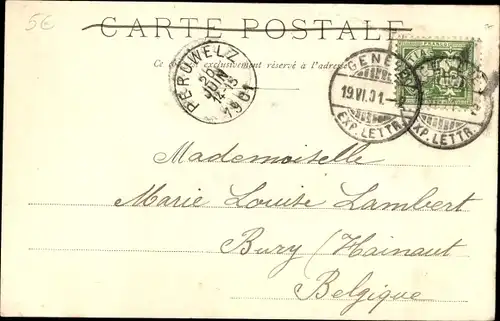 5€
CARTE POSTALE
Ce exclusivement réservé à l'adresse
PERUWELZ
20
JUIN
14-15
1901
GENÈVE
19.VI.01.-
EXP. LETTR.
EXP. LETTR.
FRANCO
Mademoiselle
Marie Louise Lambert
Bury (Hainaut
Belgique